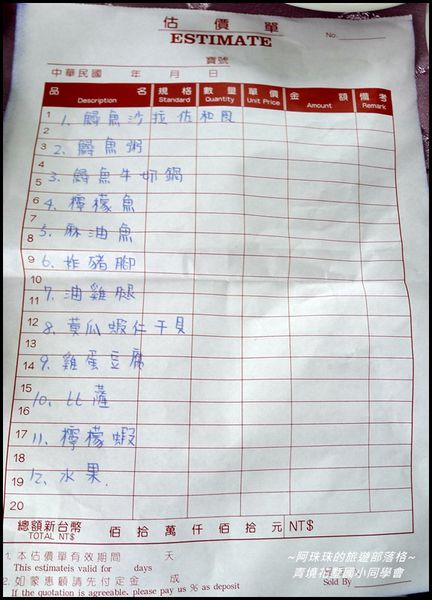 估價單
ESTIMATE
No.
寶號
中華民國 年 月 日
品名 規格 數量 單價 金額 備考
Description Standard Quantity Unit Price Amount Remark
1 1. 鱘魚沙拉佐和風
2
3 2. 鱘魚粥
4
5 3. 鱘魚牛奶鍋
6 4. 檸檬魚
7
8 5. 麻油魚
9 6. 炸豬腳
10
11 7. 油雞腿
12 8. 黃瓜蝦仁干貝
13
14 9. 雞蛋豆腐
15
16 10. 比薩
17 11. 檸檬蝦
18
19 12. 水果
20
總額新台幣 佰拾萬仟佰拾元 NT$
TOTAL NT$
1. 本估價單有效期間 天
This estimateis valid for days
2. 如蒙惠顧請先付定金 成
If the quotation is agreeable, please pay us % as deposit
Sold By
~阿珠珠的旅遊部落格~